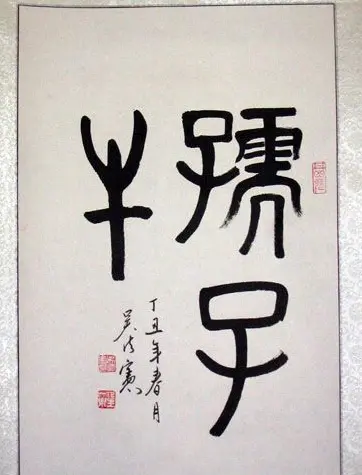 孺子
牛
丁丑年春月
吴法宪